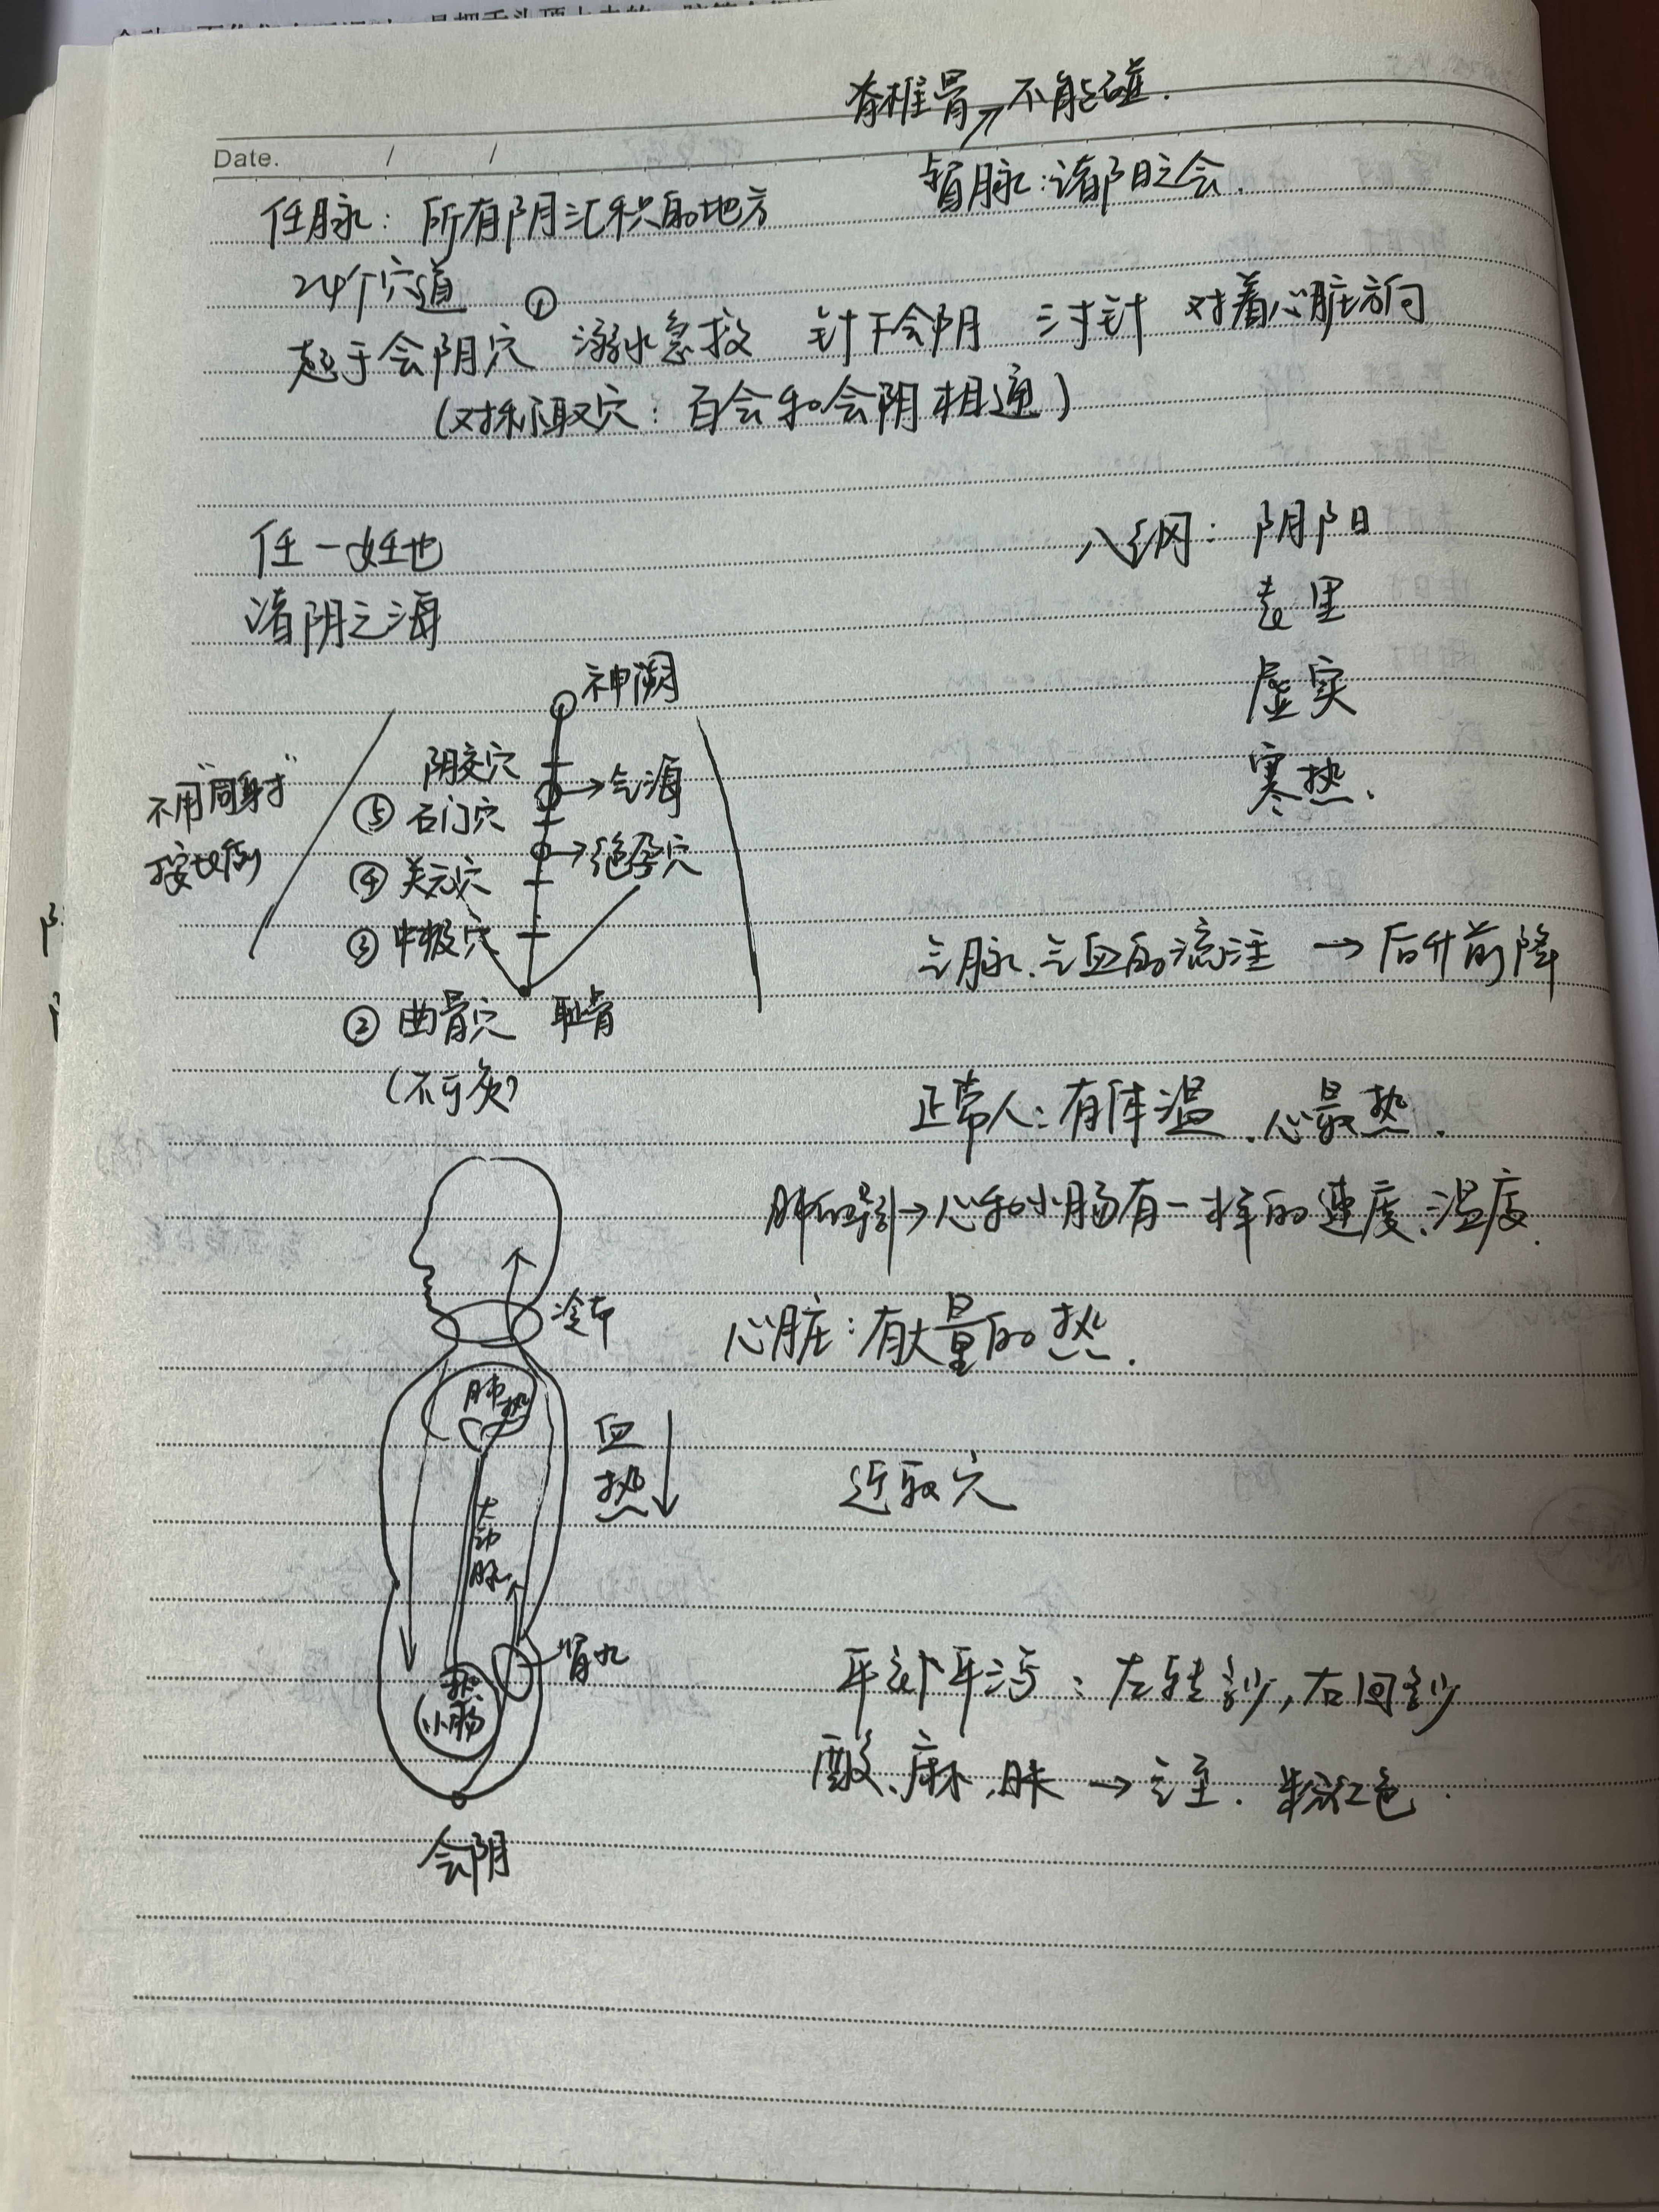 脊椎骨 → 不能碰.
Date. / /
督脉:诸阳之会.
任脉: 所有阴汇积的地方
24个穴道
起于会阴穴 ① 溺水急救 针下会阴 三寸针 对着心脏方向
(对称取穴: 百会和会阴相通)
任一妊也
诸阴之海
八纲: 阴阳
表里
虚实
寒热.
神阙
阴交穴
→气海
⑤ 石门穴
→绝孕穴
④ 关元穴
③ 中极穴
② 曲骨穴 耻骨
(不可灸)
不用"同身寸"
按比例
气脉、气血的流注 → 后升前降
正常人:有体温、心最热.
肺的导引→心和小肠有一样的速度、温度.
心脏:有大量的热.
冷却
肺
热
血
热
大动脉
近取穴
肾水
热
小肠
会阴
平补平泻:左转,右回
酸、麻、胀 → 粉红色.